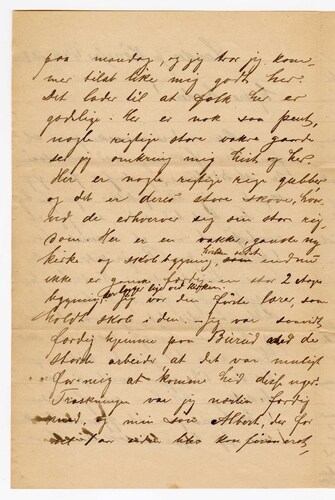 paa mandag, og jeg tror jeg kom-
mer til at like mig godt her.
Det lader til at folk her er
godlige. Her er nok saa pent,
nogle rigtige store vakre gaarde
ser jeg omkring mig hist og her.
Her er nogle rigtige rige gubber
og det er deres store skove, hvor
ved de erhverver sig sin store rig
dom. Her er en vakker, ganske ny
kerke og skolebygning, som endnu
ikke er ganske færdig en stor 2 etages
bygning, her ligger lige ved kirken. Jeg var den første lærer, som
holdt skole i den. Jeg var saavidt
færdig hjemme paa Bierud med de
største arbeider at det var muligt
for mig at komme hid disse uger.
Træskningen var jeg næsten færdig
med, og min søn Albert, der for
uden